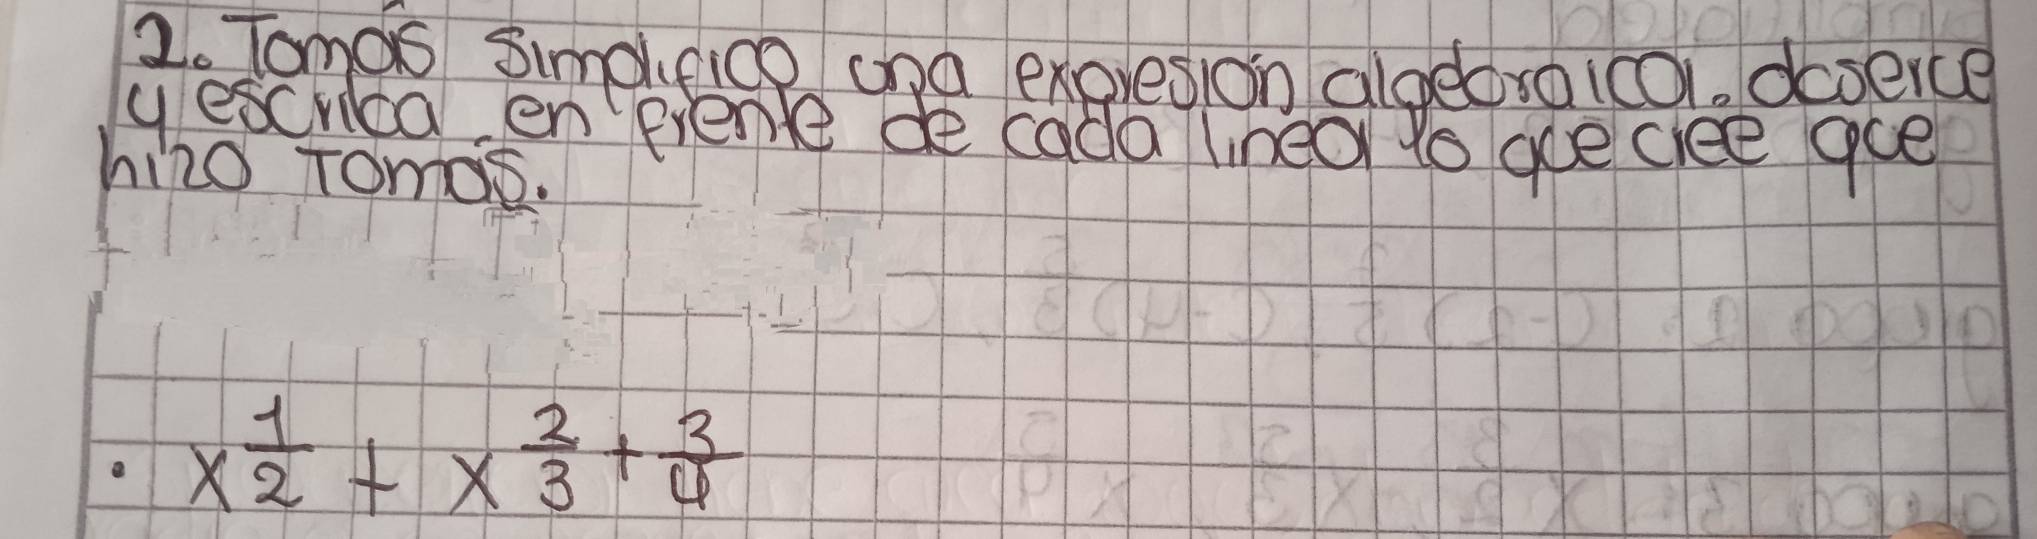 2. Tomás Simplifico una expresión algebraica. observe
y escriba en frente de cada linea lo que cree que
hizo Tomás.
· x 1/2 + x 2/3 + 3/4